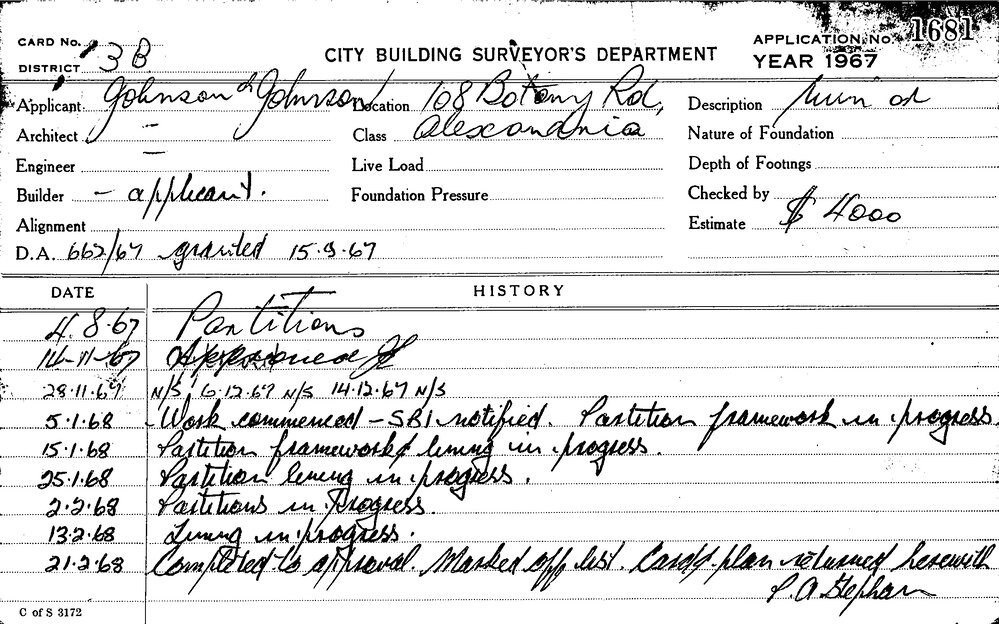 CARD No.
DISTRICT 3B
CITY BUILDING SURVEYOR'S DEPARTMENT
APPLICATION No. 1681
YEAR 1967
Applicant Johnson & Johnson Location 108 Botany Rd, Description
Architect - Class Alexandria Nature of Foundation
Engineer - Live Load Depth of Footings
Builder - applicant. Foundation Pressure Checked by
Alignment Estimate $ 4000
D.A. 662/67 granted 15.9.67
DATE HISTORY
4.8.67 Partitions
14-11-67 Approved
28.11.67 N/S 6.12.67 N/S 14.12.67 N/S
5.1.68 Work commenced - SBI notified. Partition framework in progress.
15.1.68 Partition framework & lining in progress.
25.1.68 Partition lining in progress.
2.2.68 Partitions in Progress.
13.2.68 Lining in progress.
21.2.68 Completed to approval. Marked off list. Card & plan returned herewith
P. A Stephan
C of S 3172